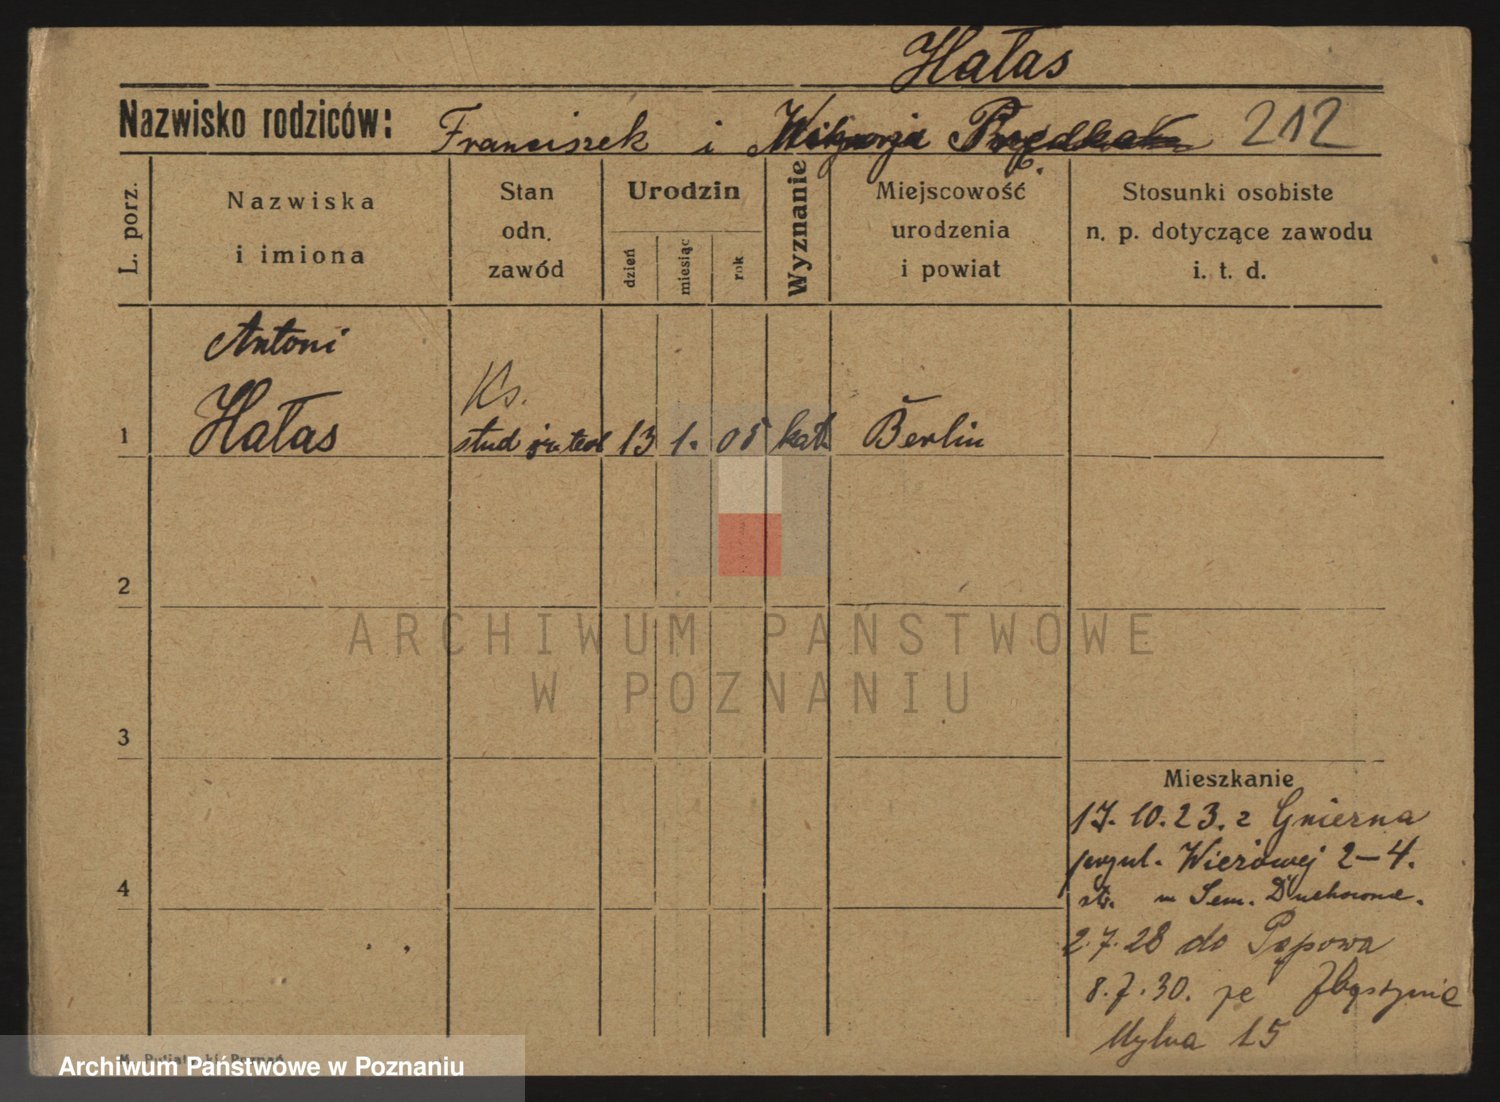 Hałas
Nazwisko rodziców: Franciszek i 212
L. porz.
Nazwiska
i imiona
Stan
odn.
zawód
Urodzin
dzień
miesiąc
rok
Wyznanie
Miejscowość
urodzenia
i powiat
Stosunki osobiste
n. p. dotyczące zawodu
i. t. d.
Antoni
Ks.
1 Hałas stud 13 1. 05 kat. Berlin
2
ARCHIWUM PAŃSTWOWE
W POZNANIU
3
Mieszkanie
17. 10. 23. z Gniezna
Wieżowej 2-4.
4
w Sem. Duchowne.
2.7.28 do Pąpowa
8.7.30. Zbąszynie
Mylna 15
Archiwum Państwowe w Poznaniu